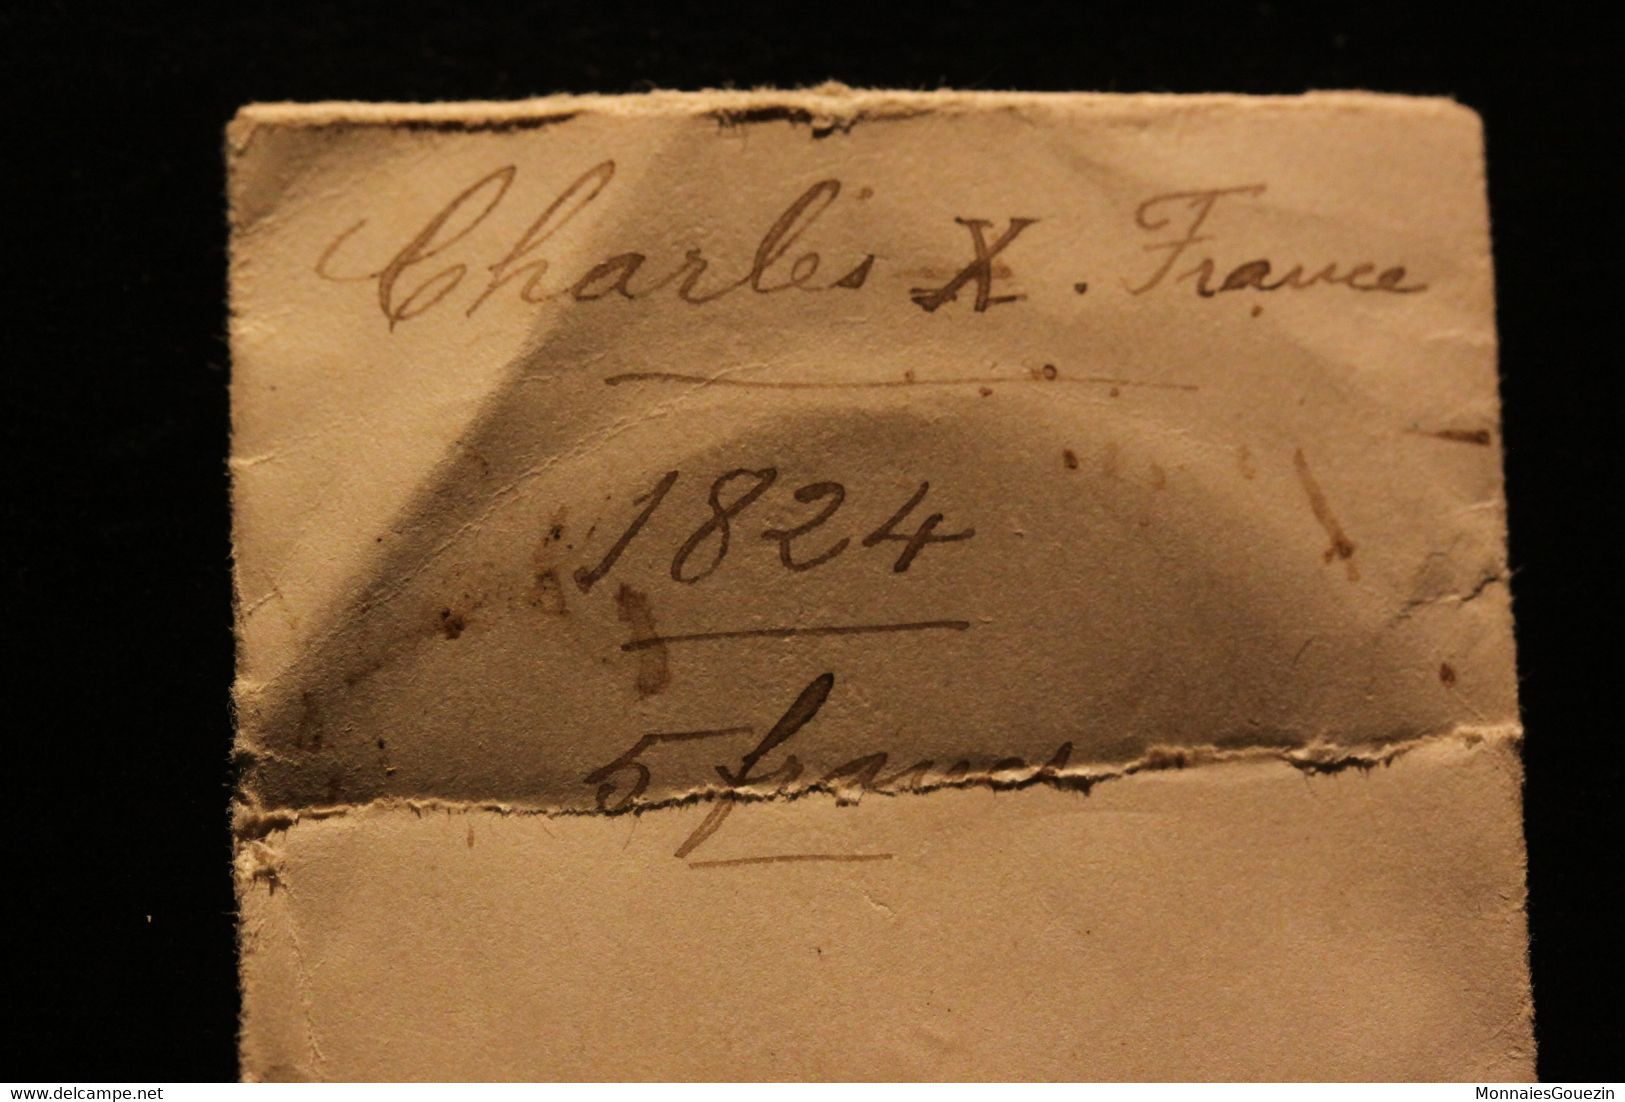 Charles X. France
1824
5 francs
delcampe.net
MonnaiesGouezin